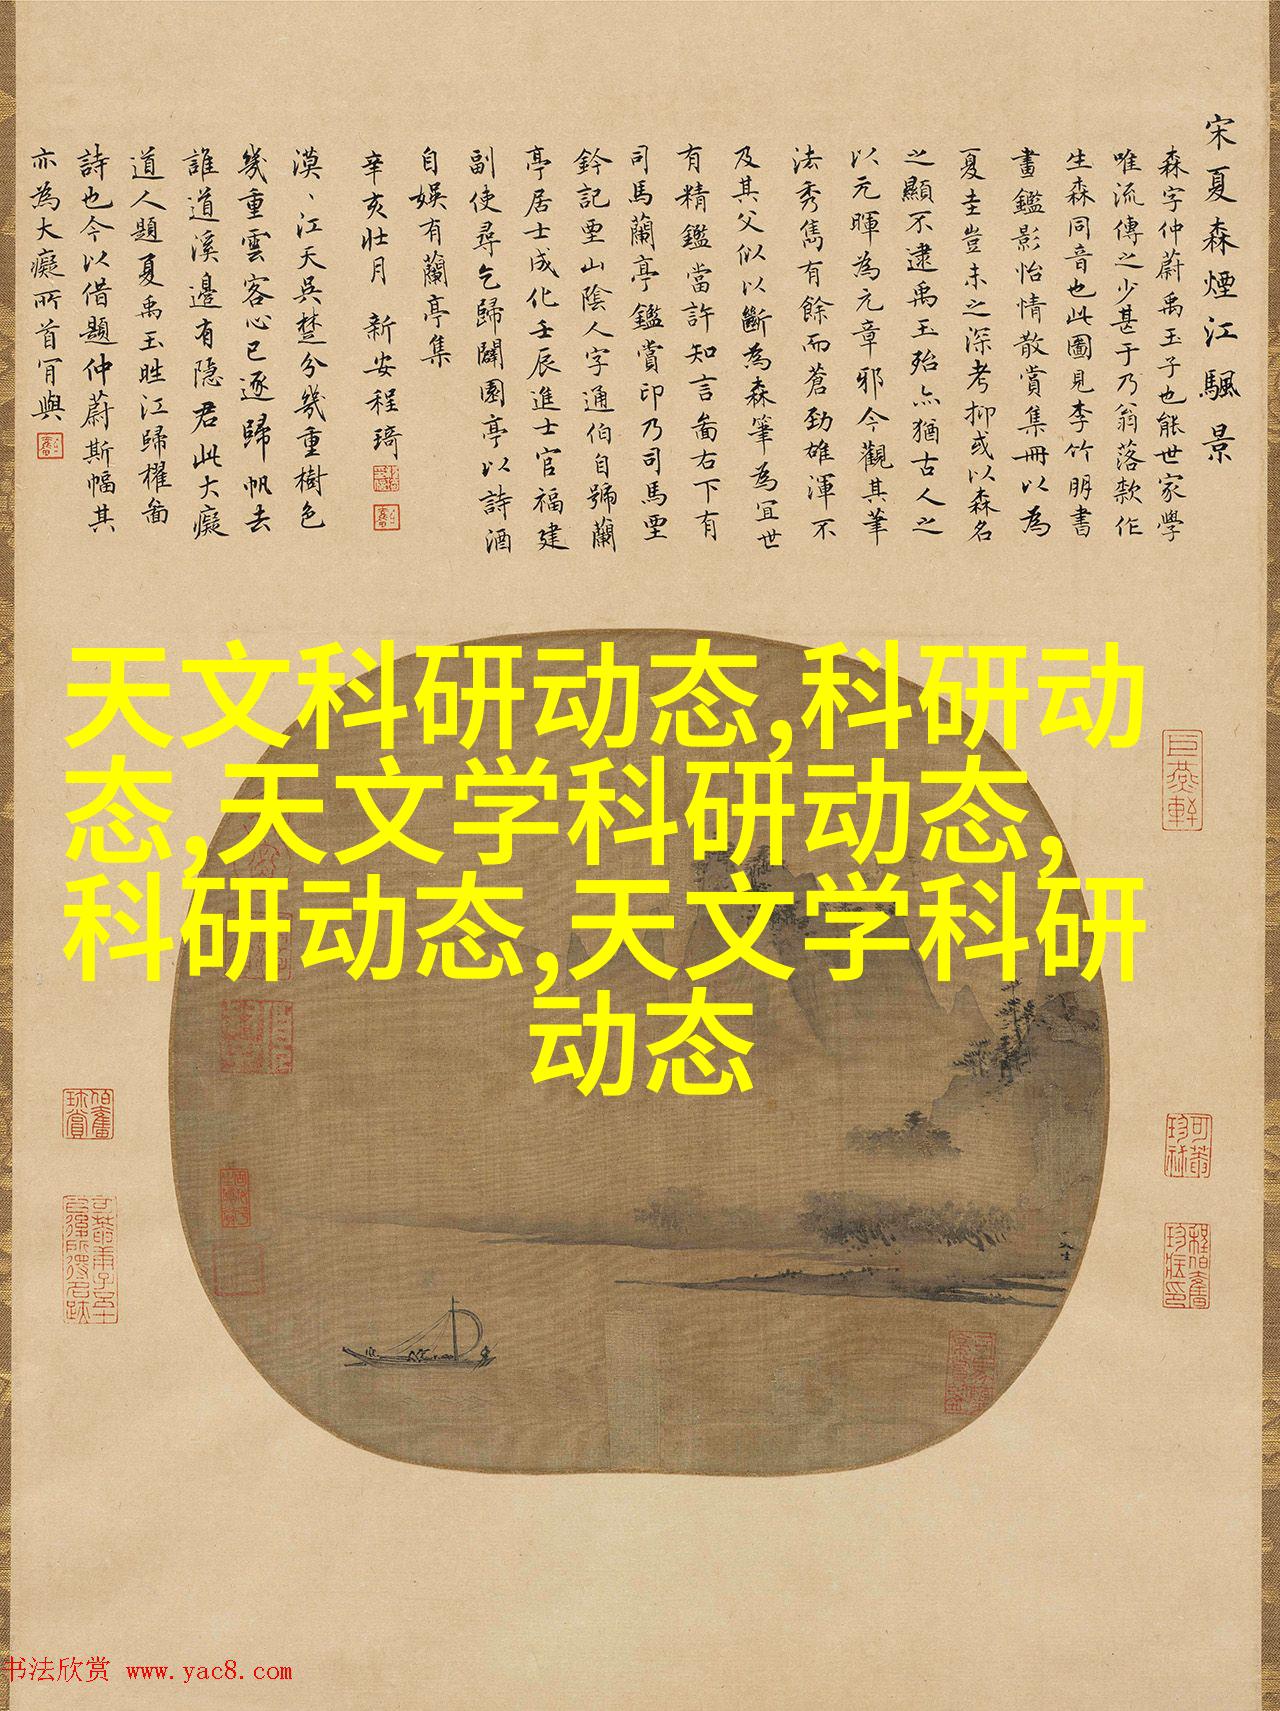 宋夏森煙江颿景
森字仲蔚禹玉子也能世家學
唯流傳之少甚于乃翁落款作
生森同音也此圖見李竹朋書
畫鑑影怡情散賞集冊以為
夏圭豈未之深考抑或以森名
之顯不逮禹玉殆亦猶古人之
以元暉為元章邪今觀其筆
法秀雋有餘而蒼勁雄渾不
及其父似以斷為森筆為宜世
有精鑑當許知言畵右下有
司馬蘭亭鑑賞印乃司馬垔
鈐記垔山陰人字通伯自號蘭
亭居士成化壬辰進士官福建
副使尋乞歸闢園亭以詩酒
自娛有蘭亭集
辛亥壯月 新安程琦
漠、江天吳楚分幾重樹色
幾重雲客心已逐歸帆去
誰道溪邊有隱君此大癡
道人題夏禹玉晴江歸櫂畵
詩也今以借題仲蔚斯幅其
亦為大癡所首肎與
天文科研动态,科研动
态,天文学科研动态,
科研动态,天文学科研
动态
书法欣赏 www.yac8.com